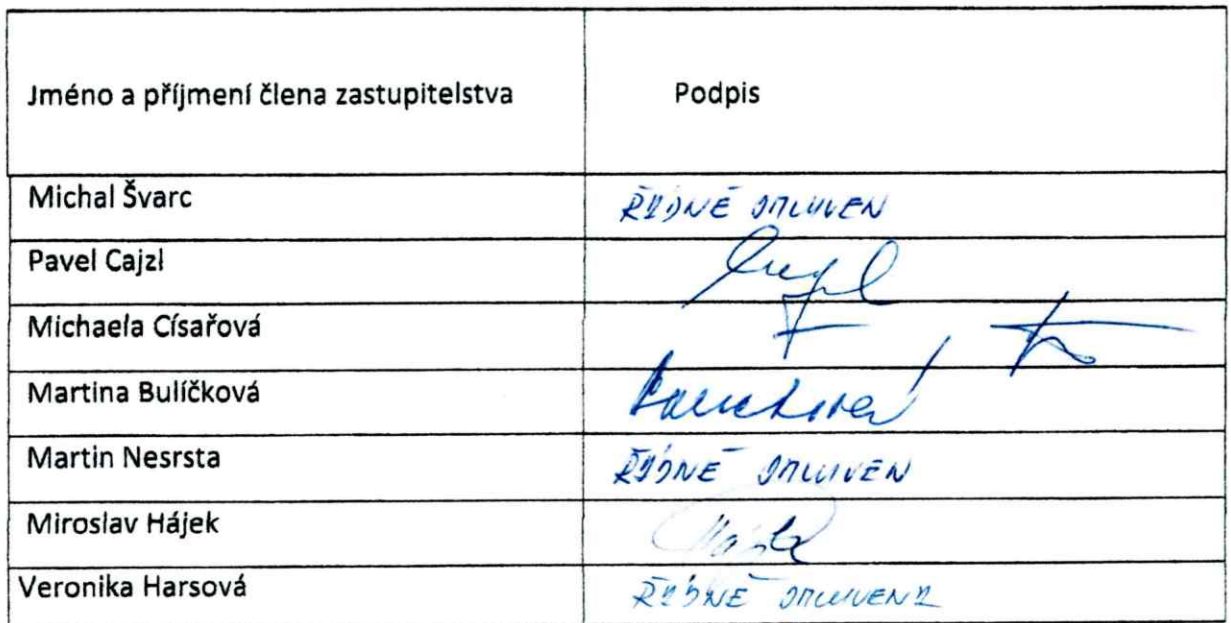 Jméno a příjmení člena zastupitelstva Podpis
Michal Švarc ŘÁDNĚ OMLUVEN
Pavel Cajzl
Michaela Císařová
Martina Bulíčková
Martin Nesrsta ŘÁDNĚ OMLUVEN
Miroslav Hájek
Veronika Harsová ŘÁDNĚ OMLUVENA